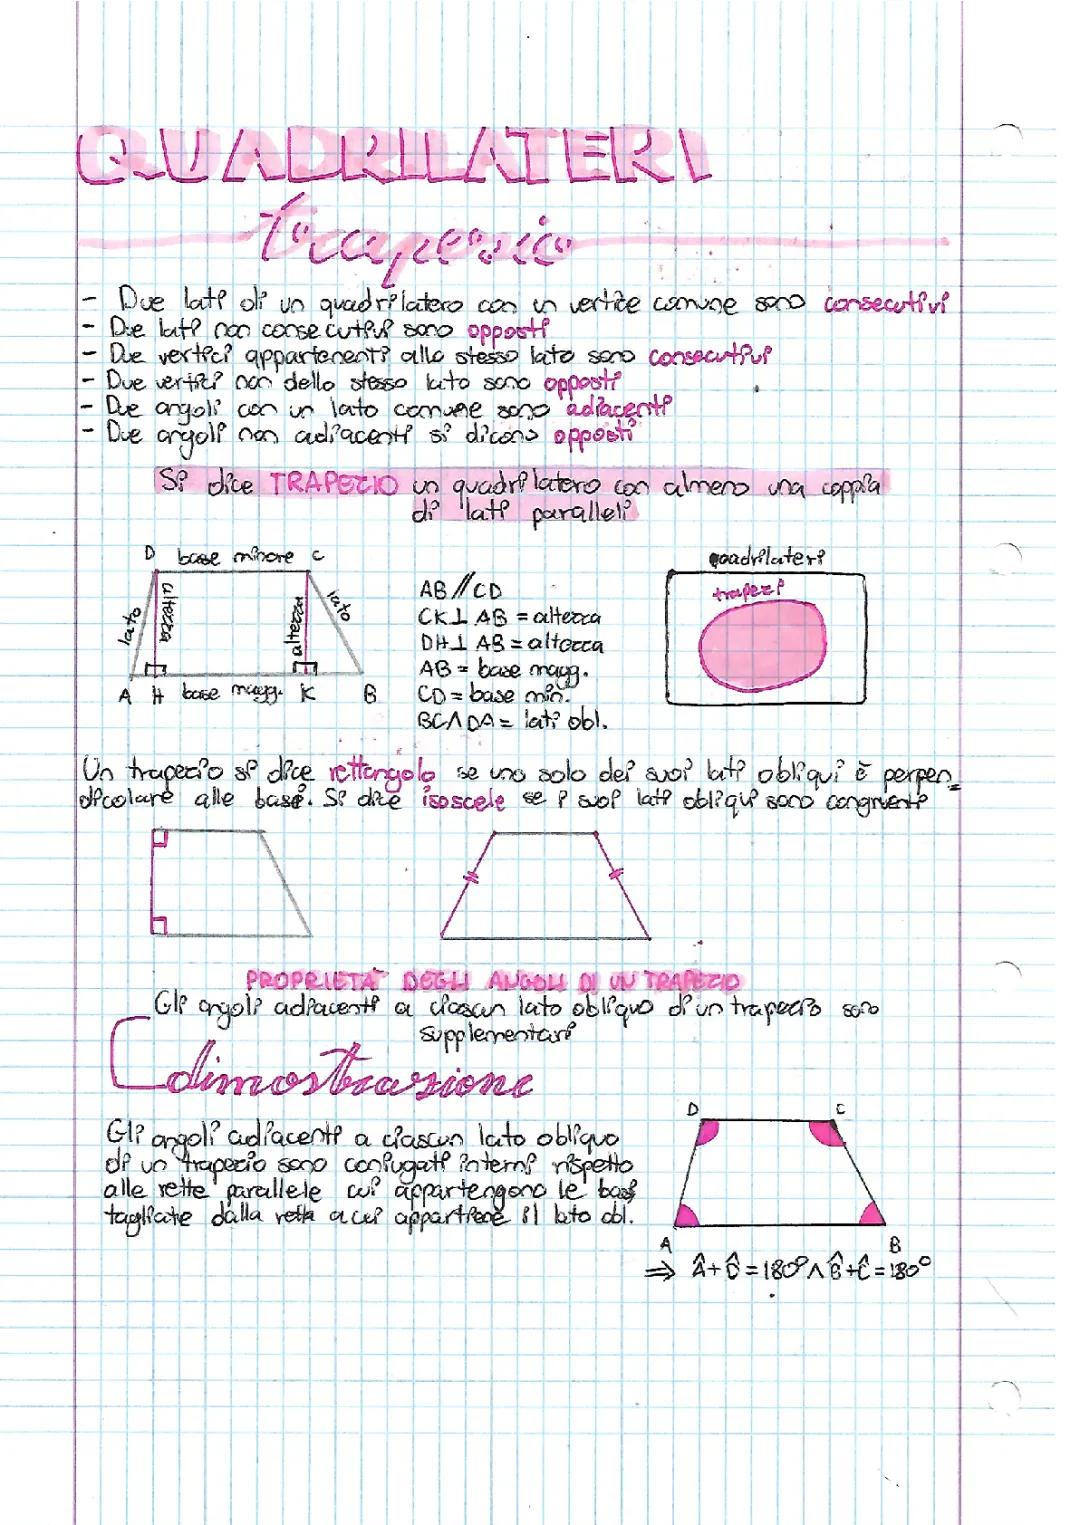 QUADRILATERI
trapezio
- Due lati di un quadrilatero con un vertice comune sono consecutivi
- Due lati non consecutivi sono opposti
- Due vertici appartenenti allo stesso lato sono consecutivi
- Due vertici non dello stesso lato sono opposti
- Due angoli con un lato comune sono adiacenti
- Due angoli non adiacenti si dicono opposti
Si dice TRAPEZIO un quadrilatero con almeno una coppia
di lati paralleli
D base minore C
lato altezza altezza lato
A H base magg. K B
AB // CD
CK ⊥ AB = altezza
DH ⊥ AB = altezza
AB = base magg.
CD = base min.
BC ∧ DA = lati obl.
quadrilateri
trapezi
Un trapezio si dice rettangolo se uno solo dei suoi lati obliqui è perpen=
dicolare alle basi. Si dice isoscele se i suoi lati obliqui sono congruenti
PROPRIETÀ DEGLI ANGOLI DI UN TRAPEZIO
Gli angoli adiacenti a ciascun lato obliquo di un trapezio sono
supplementari
dimostrazione
Gli angoli adiacenti a ciascun lato obliquo
di un trapezio sono coniugati interni rispetto
alle rette parallele cui appartengono le basi
tagliate dalla retta a cui appartiene il lato obl.
D C
A B
⇒ Â+D̂=180° ∧ B̂+Ĉ=180°